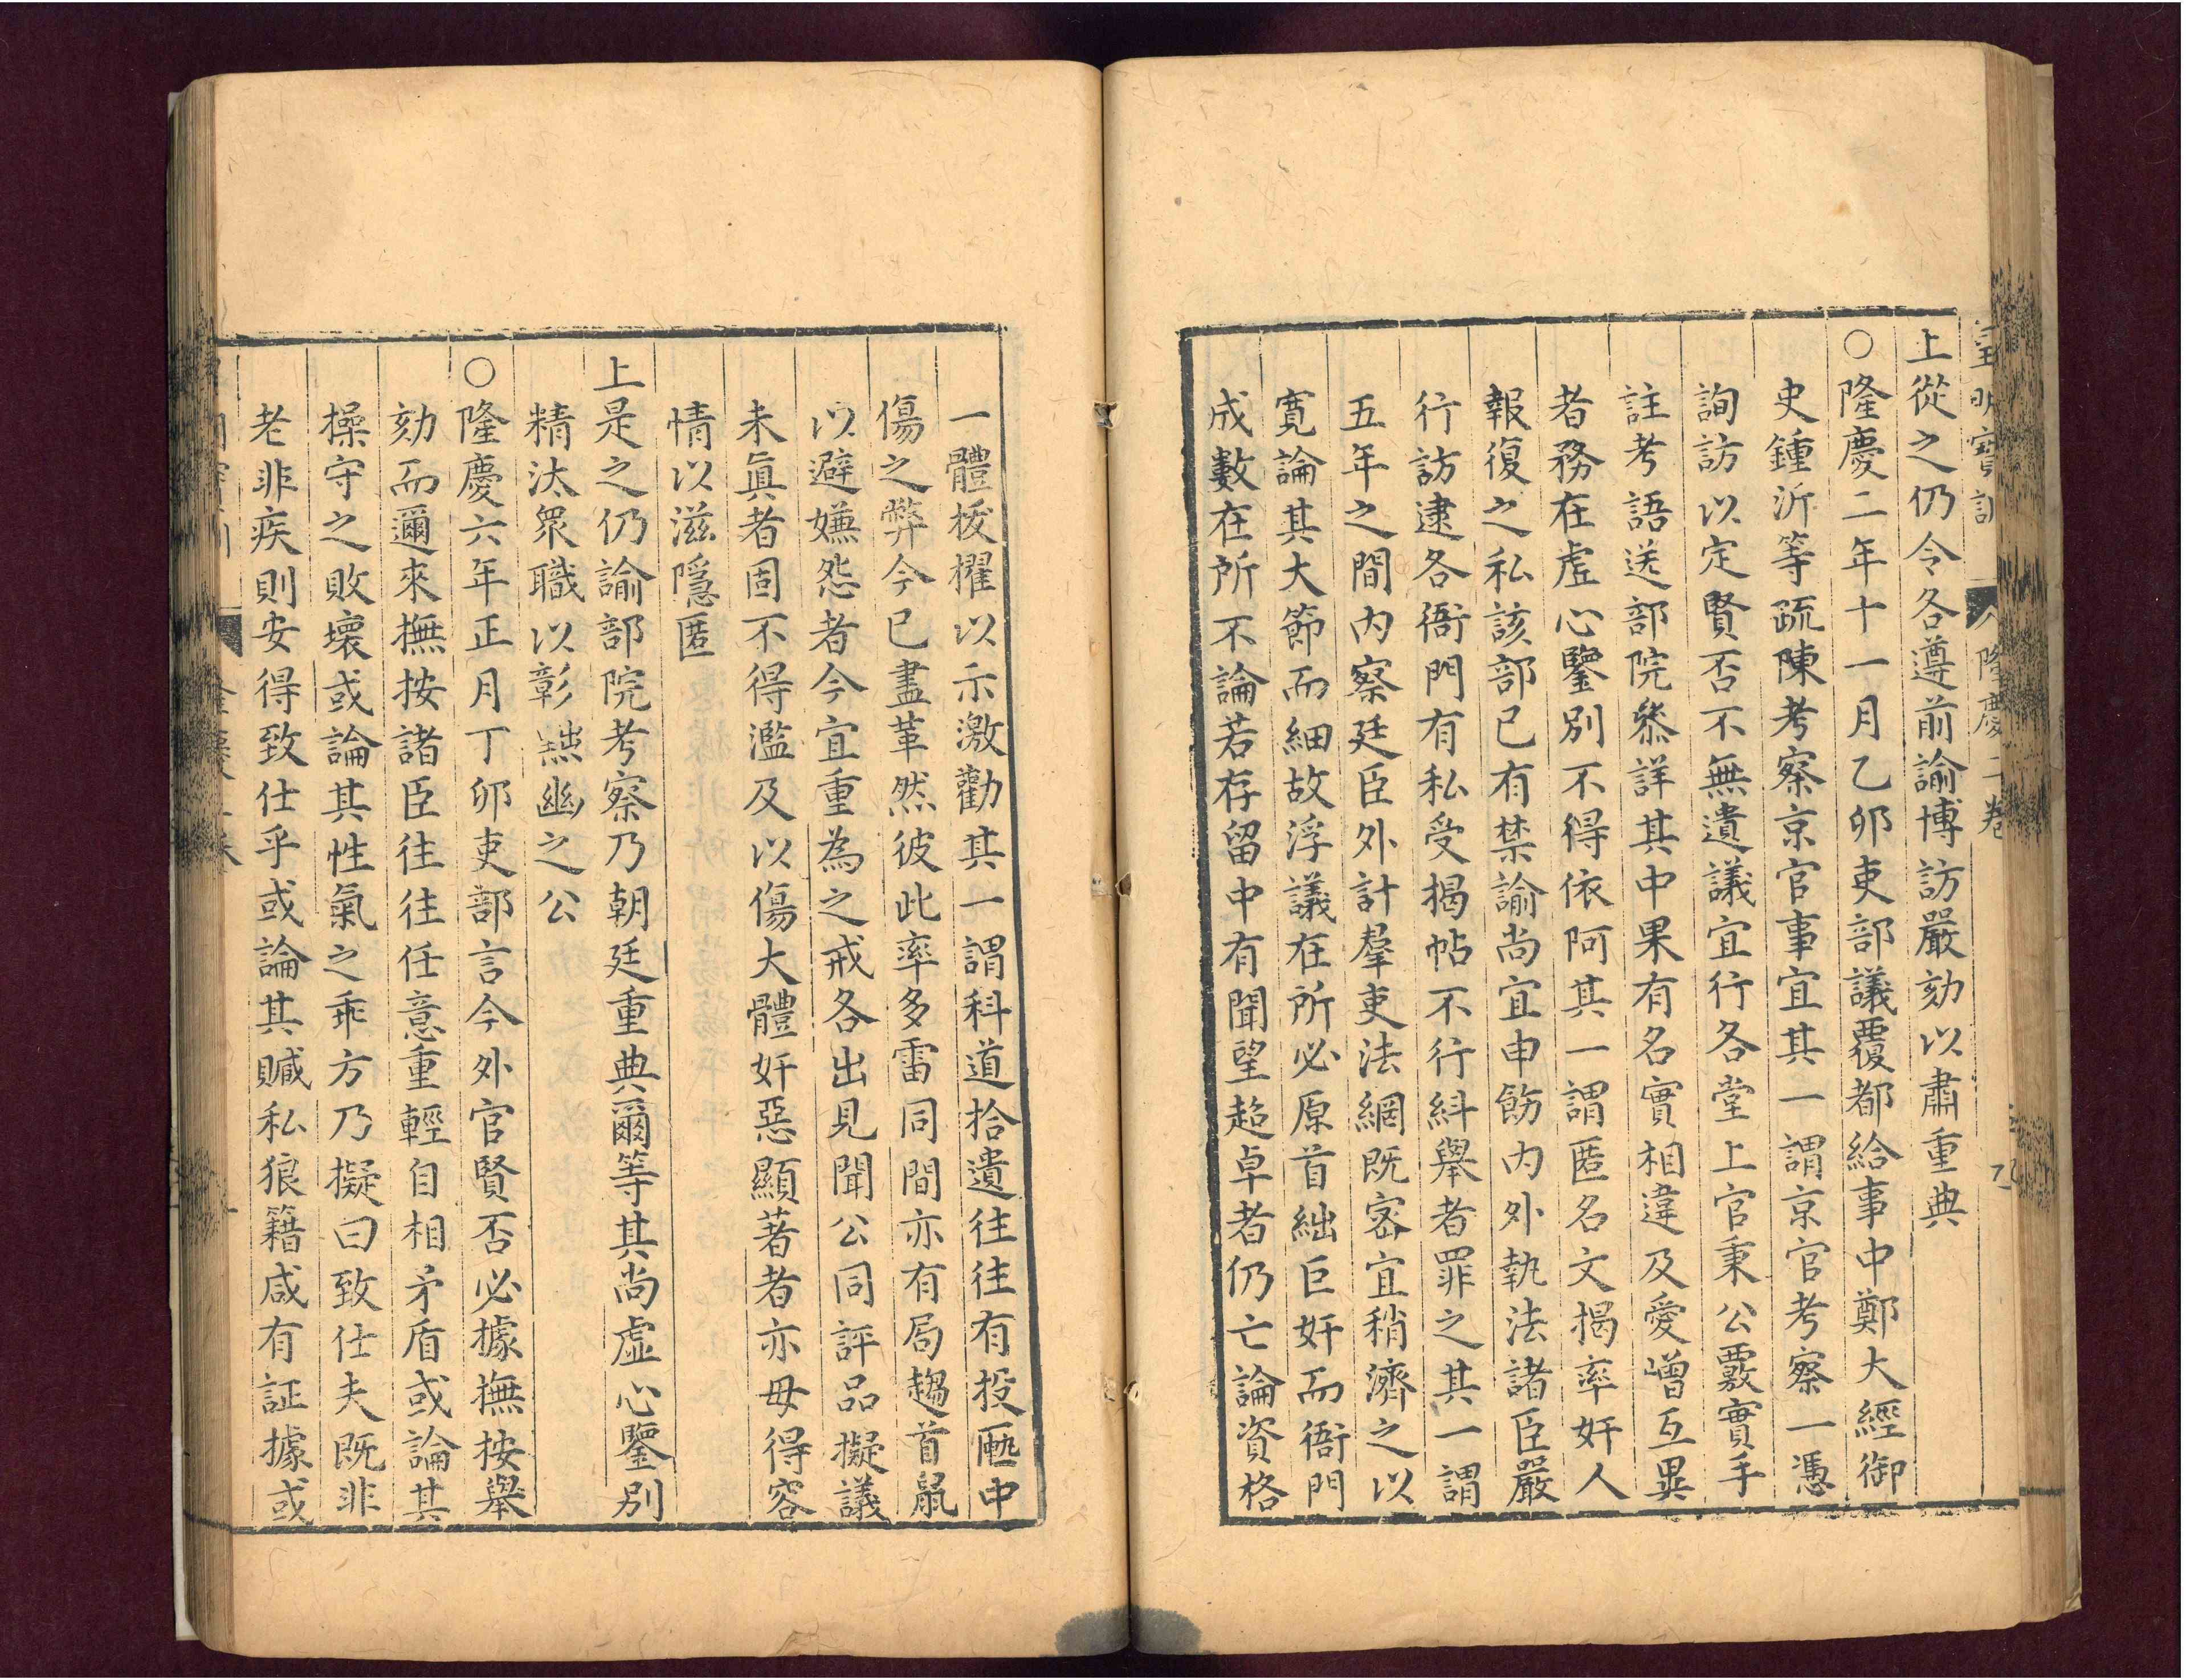 皇明寶訓 隆慶二卷 九
上從之仍令各遵前諭博訪嚴劾以肅重典
○隆慶二年十一月乙卯吏部議覆都給事中鄭大經御
史鍾沂等疏陳考察京官事宜其一謂京官考察一憑
詢訪以定賢否不無遺議宜行各堂上官秉公覈實手
註考語送部院叅詳其中果有名實相違及愛憎互異
者務在虛心鑒別不得依阿其一謂匿名文揭率奸人
報復之私該部已有禁諭尚宜申飭內外執法諸臣嚴
行訪逮各衙門有私受揭帖不行糾舉者罪之其一謂
五年之間內察廷臣外計羣吏法網既密宜稍濟之以
寬論其大節而細故浮議在所必原首絀巨奸而衙門
成數在所不論若存留中有聞望超卓者仍亡論資格
一體拔擢以示激勸其一謂科道拾遺往往有投匭中
傷之弊今已盡革然彼此率多雷同間亦有局趨首鼠
以避嫌怨者今宜重為之戒各出見聞公同評品擬議
未眞者固不得濫及以傷大體奸惡顯著者亦毋得容
情以滋隱匿
上是之仍諭部院考察乃朝廷重典爾等其尚虛心鑒別
精汰眾職以彰黜幽之公
○隆慶六年正月丁卯吏部言今外官賢否必據撫按舉
劾而邇來撫按諸臣往往任意重輕自相矛盾或論其
操守之敗壞或論其性氣之乖方乃擬曰致仕夫既非
老非疾則安得致仕乎或論其贓私狼籍咸有証據或